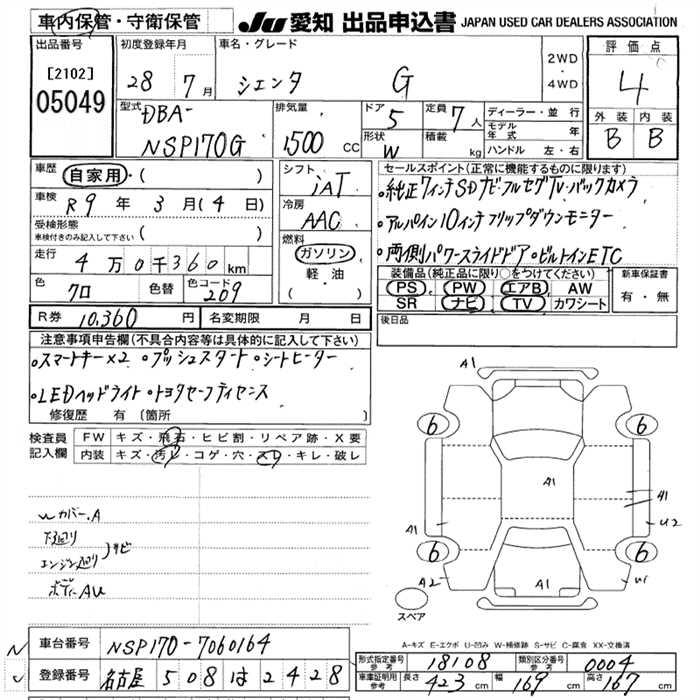 車内保管・守衛保管
JU 愛知 出品申込書 JAPAN USED CAR DEALERS ASSOCIATION
出品番号 初度登録年月 車名・グレード 評価点
[2102]
05049
28年7月 シエンタ G 2WD・4WD 4
型式 DBA-NSP170G 排気量 1500 CC ドア 5 定員 7人 形状 W 積載 kg
ディーラー・並行
モデル年式 年
ハンドル 左・右
外装 内装
B B
車歴 自家用・( )
シフト iAT
車検 R9年3月(4日)
冷房 AAC
受検形態 ( )
車検付きのみ記入して下さい
燃料 ガソリン・軽油・( )
走行 4万0千360km
色 クロ 色替 色コード 209
R券 10,360円 名変期限 月 日
セールスポイント(正常に機能するものに限ります)
・純正7インチSDナビ・フルセグTV・バックカメラ
・アルパイン10インチフリップダウンモニター
・両側パワースライドドア・ビルトインETC
装備品(純正品に限り○をつけてください) 新車保証書
PS PW エアB AW 有・無
SR ナビ TV カワシート
後日品
注意事項申告欄(不具合内容等は具体的に記入して下さい)
・スマートキー×2 ・プッシュスタート ・シートヒーター
・LEDヘッドライト ・トヨタセーフティセンス
修復歴 有 (箇所 )
検査員記入欄 FW キズ・飛石・ヒビ割・リペア跡・X要
内装 キズ・汚レ・コゲ・穴・スレ・キレ・破レ
カバー.A
下廻り
エンジン廻り
サビ
ボディーAU
A1
6 6
A1
A1
A1 U2
6 6
A2 A1 U1
スペア
A-キズ E-エクボ U-凹み W-補修跡 S-サビ C-腐食 XX-交換済
車台番号 NSP170-7060164
登録番号 名古屋 508 は 2428
形式指定番号 参考 18108 類別区分番号 参考 0004
車庫証明用 参考 長さ 423cm 幅 169cm 高さ 167cm